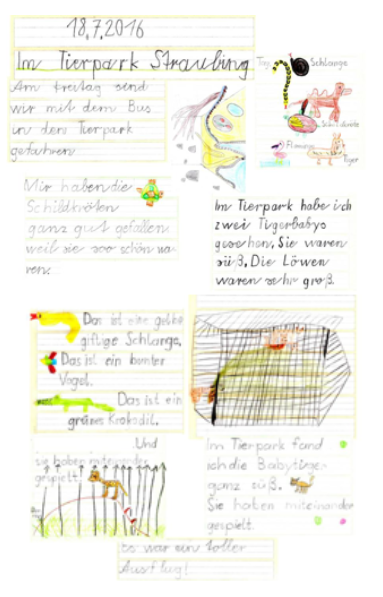 18.7.2016
Im Tierpark Straubing
Am Freitag sind
wir mit dem Bus
in den Tierpark
gefahren
Schlange
Schildkröte
Flamingo
Tiger
Mir haben die
Schildkröten
ganz gut gefallen
weil sie soo schön wa-
ren.
Im Tierpark habe ich
zwei Tigerbabys
gesehen. Sie waren
süß. Die Löwen
waren sehr groß.
Das ist eine gelbe
giftige Schlange.
Das ist ein bunter
Vogel.
Das ist ein
grünes Krokodil.
Und
sie haben miteinander
gespielt!
Im Tierpark fand
ich die Babytiger
ganz süß.
Sie haben miteinander
gespielt.
Es war ein toller
Ausflug!